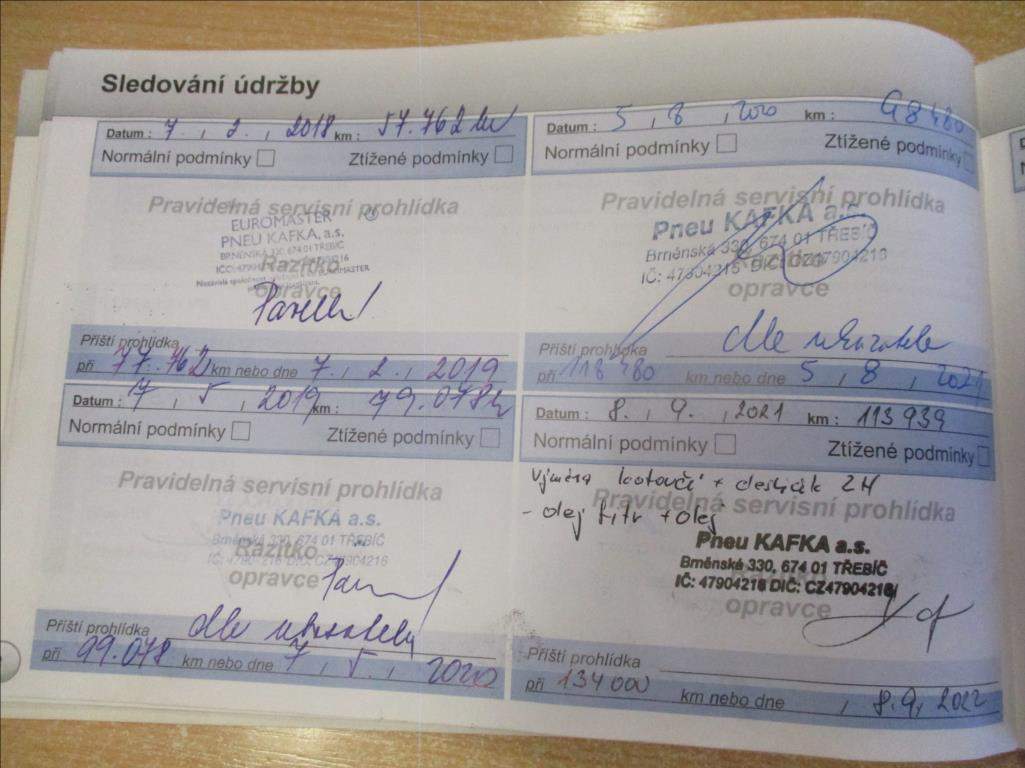 Sledování údržby
Datum : 7. , 2. , 2018 km : 57.762 km
Normální podmínky Ztížené podmínky
Pravidelná servisní prohlídka
EUROMASTER
PNEU KAFKA, a.s.
BRNĚNSKÁ 330, 674 01 TŘEBÍČ
Razítko
opravce
Příští prohlídka
při 77.762 km nebo dne 7. , 2. , 2019
Datum : 7 , 5 , 2019 km : 79.078 km
Normální podmínky Ztížené podmínky
Pravidelná servisní prohlídka
Pneu KAFKA a.s.
Brněnská 330, 674 01 TŘEBÍČ
Razítko
IČ: 47904216 DIČ: CZ47904216
opravce
Příští prohlídka dle ukazatele
při 99.078 km nebo dne 7 , 5 , 2020
Datum : 5 , 8 , 2020 km : 98480
Normální podmínky Ztížené podmínky
Pravidelná servisní prohlídka
Pneu KAFKA a.s.
Brněnská 330, 674 01 TŘEBÍČ
Razítko
IČ: 47904216 DIČ: CZ47904216
opravce
Příští prohlídka dle ukazatele
při 118480 km nebo dne 5 , 8 , 2021
Datum : 8. , 9. , 2021 km : 113 939
Normální podmínky Ztížené podmínky
Výměna + 2H
Pravidelná servisní prohlídka
- olej filtr + olej
Pneu KAFKA a.s.
Brněnská 330, 674 01 TŘEBÍČ
IČ: 47904216 DIČ: CZ47904216
opravce
Příští prohlídka
při 134 000 km nebo dne , 8.9, 2022